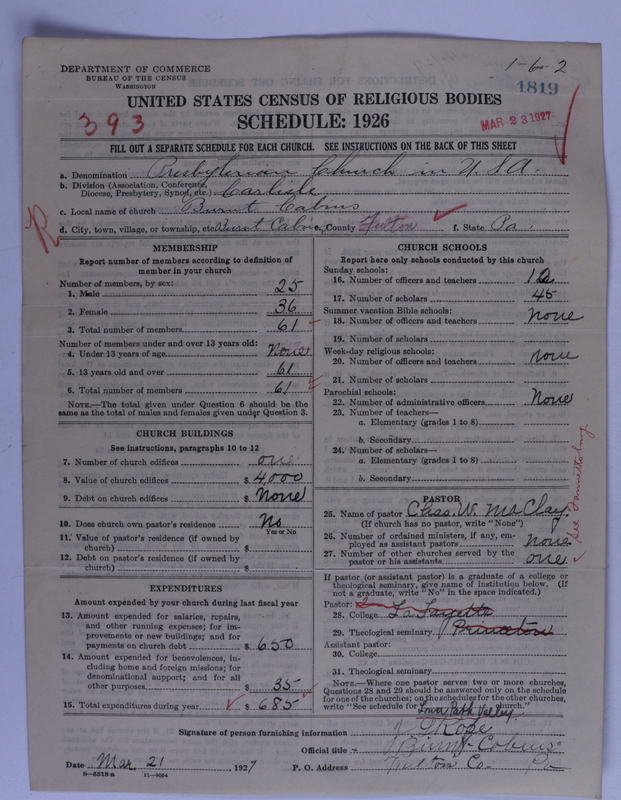 DEPARTMENT OF COMMERCE
BUREAU OF THE CENSUS
WASHINGTON
1-6-2
1819
UNITED STATES CENSUS OF RELIGIOUS BODIES
393
SCHEDULE: 1926
MAR 23 1927
FILL OUT A SEPARATE SCHEDULE FOR EACH CHURCH. SEE INSTRUCTIONS ON THE BACK OF THIS SHEET
a. Denomination Presbyterian Church in U.S.A.
b. Division (Association, Conference, Diocese, Presbytery, Synod, etc.) Carlisle
c. Local name of church Burnt Cabins
d. City, town, village, or township, etc. Burnt Cabins County Fulton f. State Pa.
R
MEMBERSHIP
Report number of members according to definition of
member in your church
Number of members, by sex:
1. Male 25
2. Female 36
3. Total number of members 61
Number of members under and over 13 years old:
4. Under 13 years of age None
5. 13 years old and over 61
6. Total number of members 61
NOTE.—The total given under Question 6 should be the
same as the total of males and females given under Question 3.
CHURCH BUILDINGS
See instructions, paragraphs 10 to 12
7. Number of church edifices one
8. Value of church edifices $ 4,000
9. Debt on church edifices $ None
10. Does church own pastor's residence No
Yes or No
11. Value of pastor's residence (if owned by
church) $
12. Debt on pastor's residence (if owned by
church) $
EXPENDITURES
Amount expended by your church during last fiscal year
13. Amount expended for salaries, repairs,
and other running expenses; for im-
provements or new buildings; and for
payments on church debt $ 650
14. Amount expended for benevolences, in-
cluding home and foreign missions; for
denominational support; and for all
other purposes $ 35
15. Total expenditures during year $ 685
CHURCH SCHOOLS
Report here only schools conducted by this church
Sunday schools:
16. Number of officers and teachers 12
17. Number of scholars 45
Summer vacation Bible schools:
18. Number of officers and teachers None
19. Number of scholars
Week-day religious schools:
20. Number of officers and teachers none
21. Number of scholars
Parochial schools:
22. Number of administrative officers None
23. Number of teachers—
a. Elementary (grades 1 to 8)
b. Secondary
24. Number of scholars—
a. Elementary (grades 1 to 8)
b. Secondary
See Fannettsburg
PASTOR
25. Name of pastor Chas. W. McClay
(If church has no pastor, write "None")
26. Number of ordained ministers, if any, em-
ployed as assistant pastors none
27. Number of other churches served by the
pastor or his assistants one
If pastor (or assistant pastor) is a graduate of a college or
theological seminary, give name of institution below. (If
not a graduate, write "No" in the space indicated.)
Pastor:
28. College La Fayette
29. Theological seminary Princeton
Assistant pastor:
30. College
31. Theological seminary
NOTE.—Where one pastor serves two or more churches,
Questions 28 and 29 should be answered only on the schedule
for one of the churches; on the schedules for the other churches,
write "See schedule for Lower Path Valley church."
Signature of person furnishing information
Official title Burnt Cabins
Date Mar. 21, 1927 P. O. Address Fulton Co. Pa
8-5518 a 11-9054